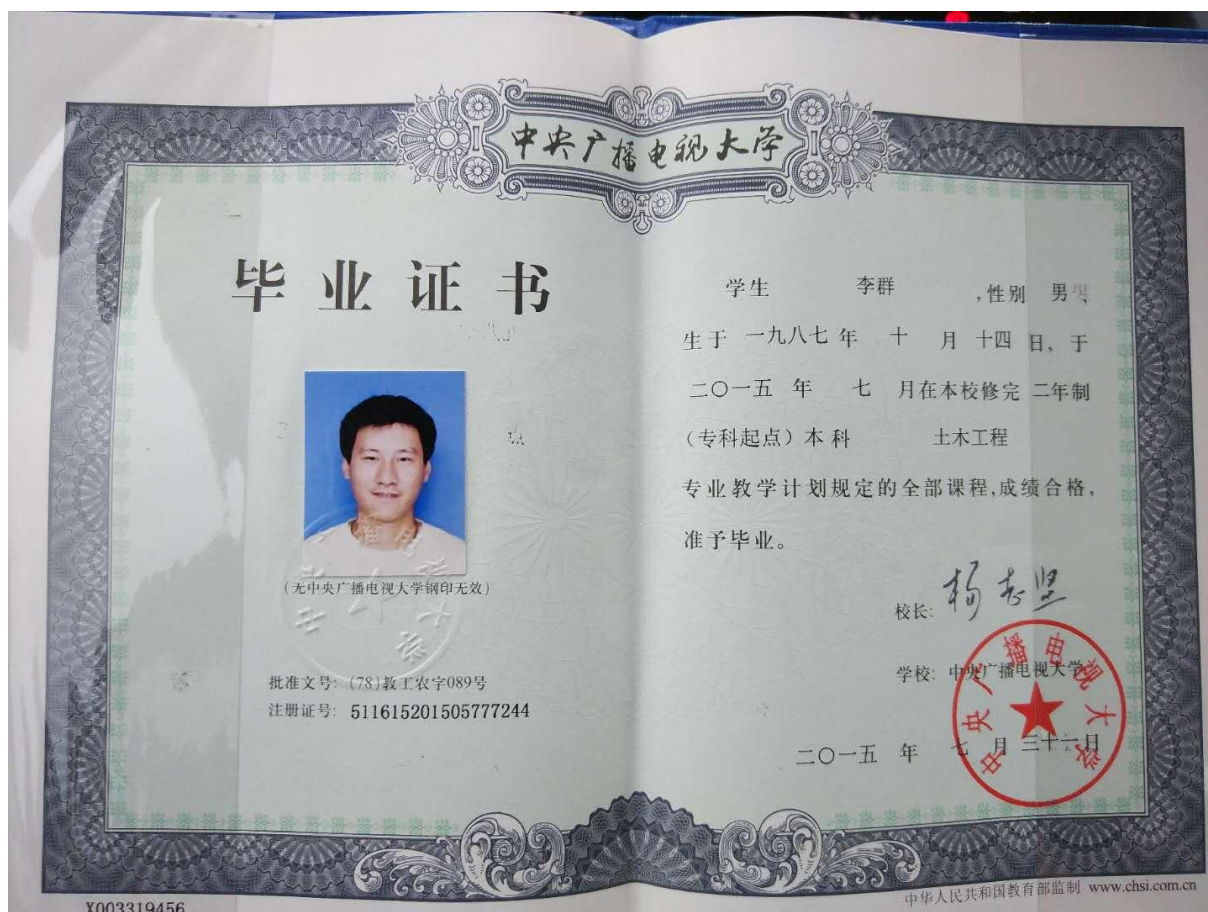 中央广播电视大学
毕业证书
(无中央广播电视大学钢印无效)
批准文号: (78)教工农字089号
注册证号: 511615201505777244
学生 李群 ,性别 男,
生于 一九八七 年 十 月 十四 日, 于
二〇一五 年 七 月在本校修完 二年制
(专科起点) 本科 土木工程
专业教学计划规定的全部课程,成绩合格,
准予毕业。
校长: 杨志坚
学校: 中央广播电视大学
中央广播电视大学
二〇一五 年 七 月 三十一日
中华人民共和国教育部监制 www.chsi.com.cn
X003319456